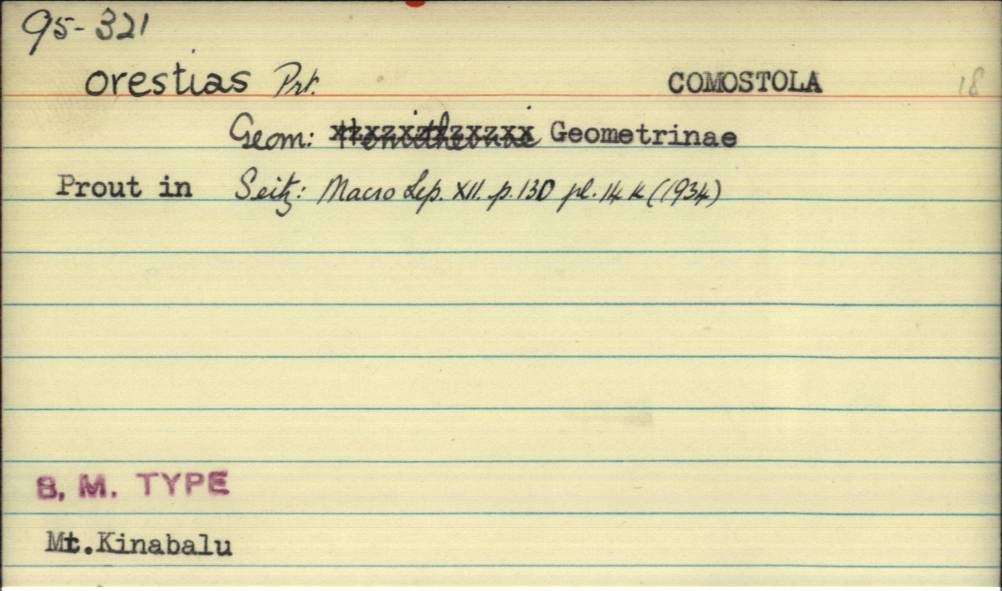 95-321
orestias Prt. COMOSTOLA 18
Geom: Hemitheinae Geometrinae
Prout in Seitz: Macro Lep. XII. p.130 pl. 14 k (1934)
B. M. TYPE
Mt.Kinabalu